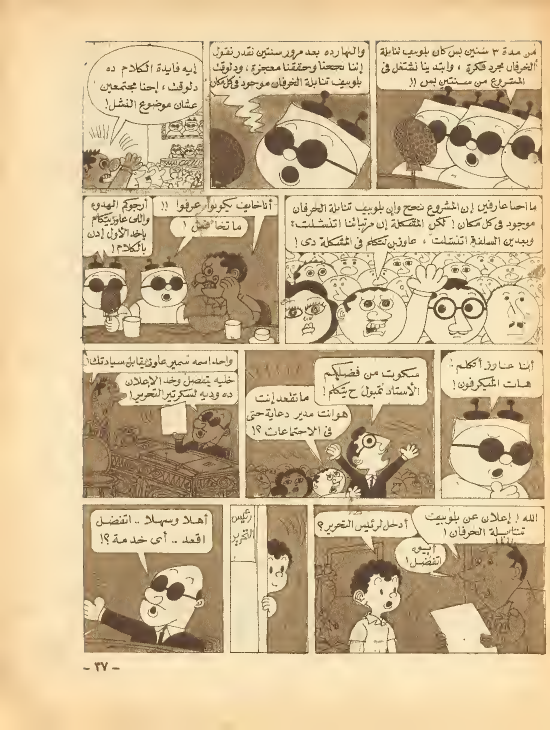 من مدة ٣ سنين بس كان بلوبيف تنابلة
الخرفان مجرد فكرة ، وابتدينا نشتغل فى
المشروع من سنتين بس !!
والنهارده بعد مرور سنتين نقدر نقول
إننا نجحنا وحققنا معجزة ، ودلوقت
بلوبيف تنابلة الخرفان موجود فى كل مكان
إيه فايدة الكلام ده
دلوقت ، إحنا مجتمعين
عشان موضوع النشل !
ما احنا عارفين إن المشروع نجح وإن بلوبيف تنابلة الخرفان
موجود فى كل مكان ! لكن المشكلة إن مرتباتنا اتنشلت ؛
وبعدين السلفة اتنشلت ، عاوزين نتكلم فى المشكلة دى !
أنا خايف يكونوا عرفوا !!
ما تخافش !
أرجوكم الهدوء
واللى عاوز يتكلم
ياخد الأول إذن
بالكلام !
أنا عاوز أتكلم :
هات الميكرفون !
سكوت من فضلكم
الأستاذ تمبول ح يتكلم !
ما تقعد إنت
هو انت مدير دعاية حتى
فى الاجتماعات ؟!
واحد اسمه سمير عاوز يقابل سيادتك !
خليه يتفضل وخد الإعلان
ده وديه لسكرتير التحرير !
الله ! إعلان عن بلوبيف
تنابلة الخرفان !
أدخل لرئيس التحرير ؟
أيوه
اتفضل !
رئيس
التحرير
أهلا وسهلا .. اتفضل
اقعد .. أى خدمة ؟!
- ٣٧ -